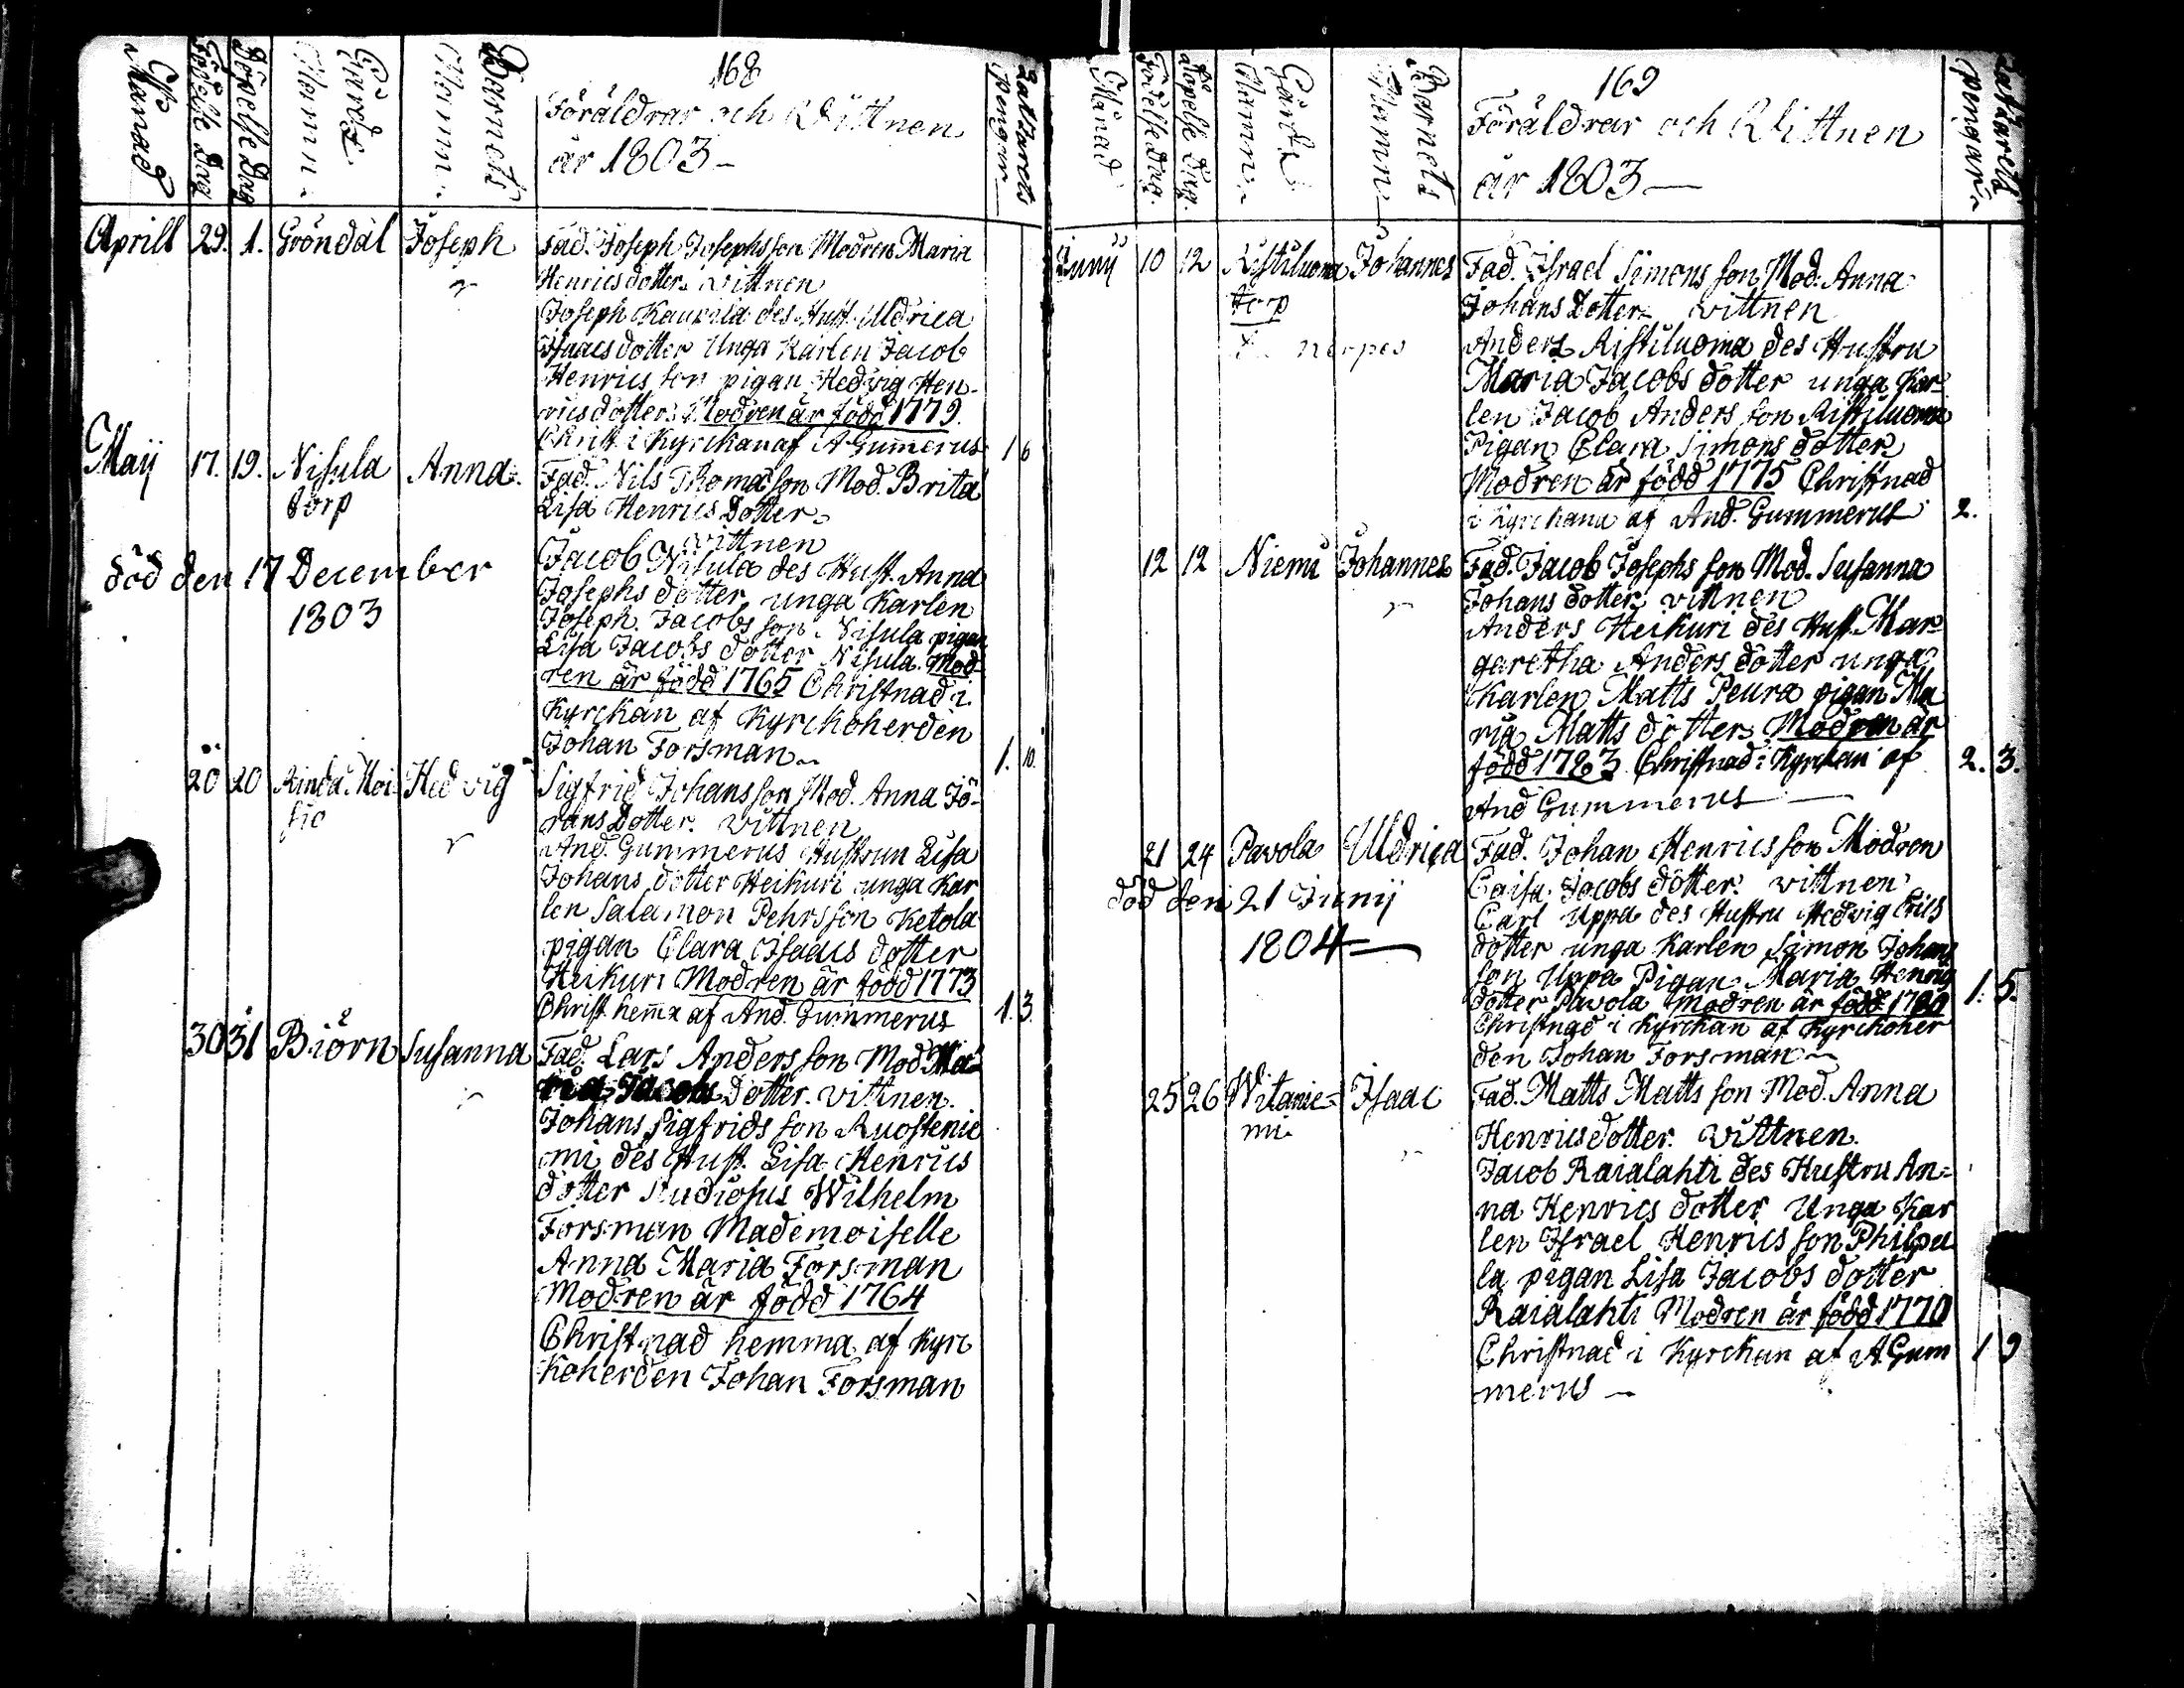 168
Månad
Födelse Dag
Döpelse Dag
Gårds Namn
Barnets Namn
Föräldrar och Wittnen
år 1803
Pengar
Aprill 29. 1. Gröndal Joseph Fad. Joseph Josephsson Modren Maria
Henricsdotter. vittnen
Joseph Kaupila des Hust. Uldrica
Isaacsdotter Unga Karlen Jacob
Henrics son pigan Hedvig Hen-
ricsdotter. Modren är född 1779.
Christ. i Kyrckan af A Gummerus 1 6
Maij 17. 19. Nisula Anna. Fad. Nils Thomasson Mod. Brita
torp Lisa Henrics Dotter
vittnen
död den 17 December Jacob Nisula des Hust. Anna
1803 Josephs dotter unga Karlen
Joseph Jacobs son Nisula pigan
Lisa Jacobs dotter Nisula. Mod
ren är född 1765 Christnad i
Kyrckan af Kyrckoherden
Johan Forsman 1. 10.
20 20 Rinda Moi- Hedvig Sigfrid Johansson Mod. Anna Jö-
sio rans Dotter. vittnen
And. Gummerus Hustrun Lisa
Johans dotter Heikuri unga Kar
len Salamon Pehrsson Ketola
pigan Clara Isaacs dotter
Heikuri Modren är född 1773
Christ hemma af And. Gummerus 1. 3.
30 31 Biörn Susanna Fad. Lars Andersson Mod Ma-
ria Jacobs Dotter. vittnen.
Johans Sigfrids son Ruostenie
mi des Hust. Lisa Henrics
dotter Studiosus Wilhelm
Forsman Mademoiselle
Anna Maria Forsman
Modren är född 1764
Christnad hemma af Kyrc
koherden Johan Forsman
169
Månad
Födelse Dag.
Döpelse Dag.
Gårds Namn
Barnets Namn
Föräldrar och Wittnen
år 1803
pengar
Junij 10 12 Ristiluoma Johannes Fad. Israel Simons son Mod. Anna
torp Johans Dotter vittnen
nerpes Anders Ristiluoma des Hustru
Maria Jacobs dotter unga Kar
len Jacob Anders son Ristiluoma
Pigan Clara Simons dotter
Modren är född 1775 Christnad
i Kyrckann af And. Gummerus 2.
12 12 Niemi Johannes Fad. Jacob Josephs son Mod. Susanna
Johans dotter vittnen
Anders Heikuri des Hust. Mar-
garetha Anders dotter unga
Karlen Matts Peura pigan Ma
ria Matts dotter Modren är
född 1783 Christnad i Kyrckan af 2. 3.
And Gummerus
21 24 Pavola Uldrica Fad. Johan Henrics son Modren
Caisa Jacobs dotter. vittnen
död den 21 Junij Carl Uppa des Hustru Hedvig Erics
1804 dotter unga Karlen Simon Johans
son Uppa Pigan Maria Henrics
dotter Pavola Modren är född 1.5.
Christnad i Kyrckan af Kyrckoher
den Johan Forsman
25 26 Witanie- Isaac Fad. Matts Matts son Mod. Anna
mi. Henricsdotter. vittnen.
Jacob Raialahti des Hustru An-
na Henrics dotter Unga Kar
len Israel Henrics son Philpu
la pigan Lisa Jacobs dotter
Raialahti Modren är född 1770
Christnad i Kyrckan af A Gum 1 9
merus